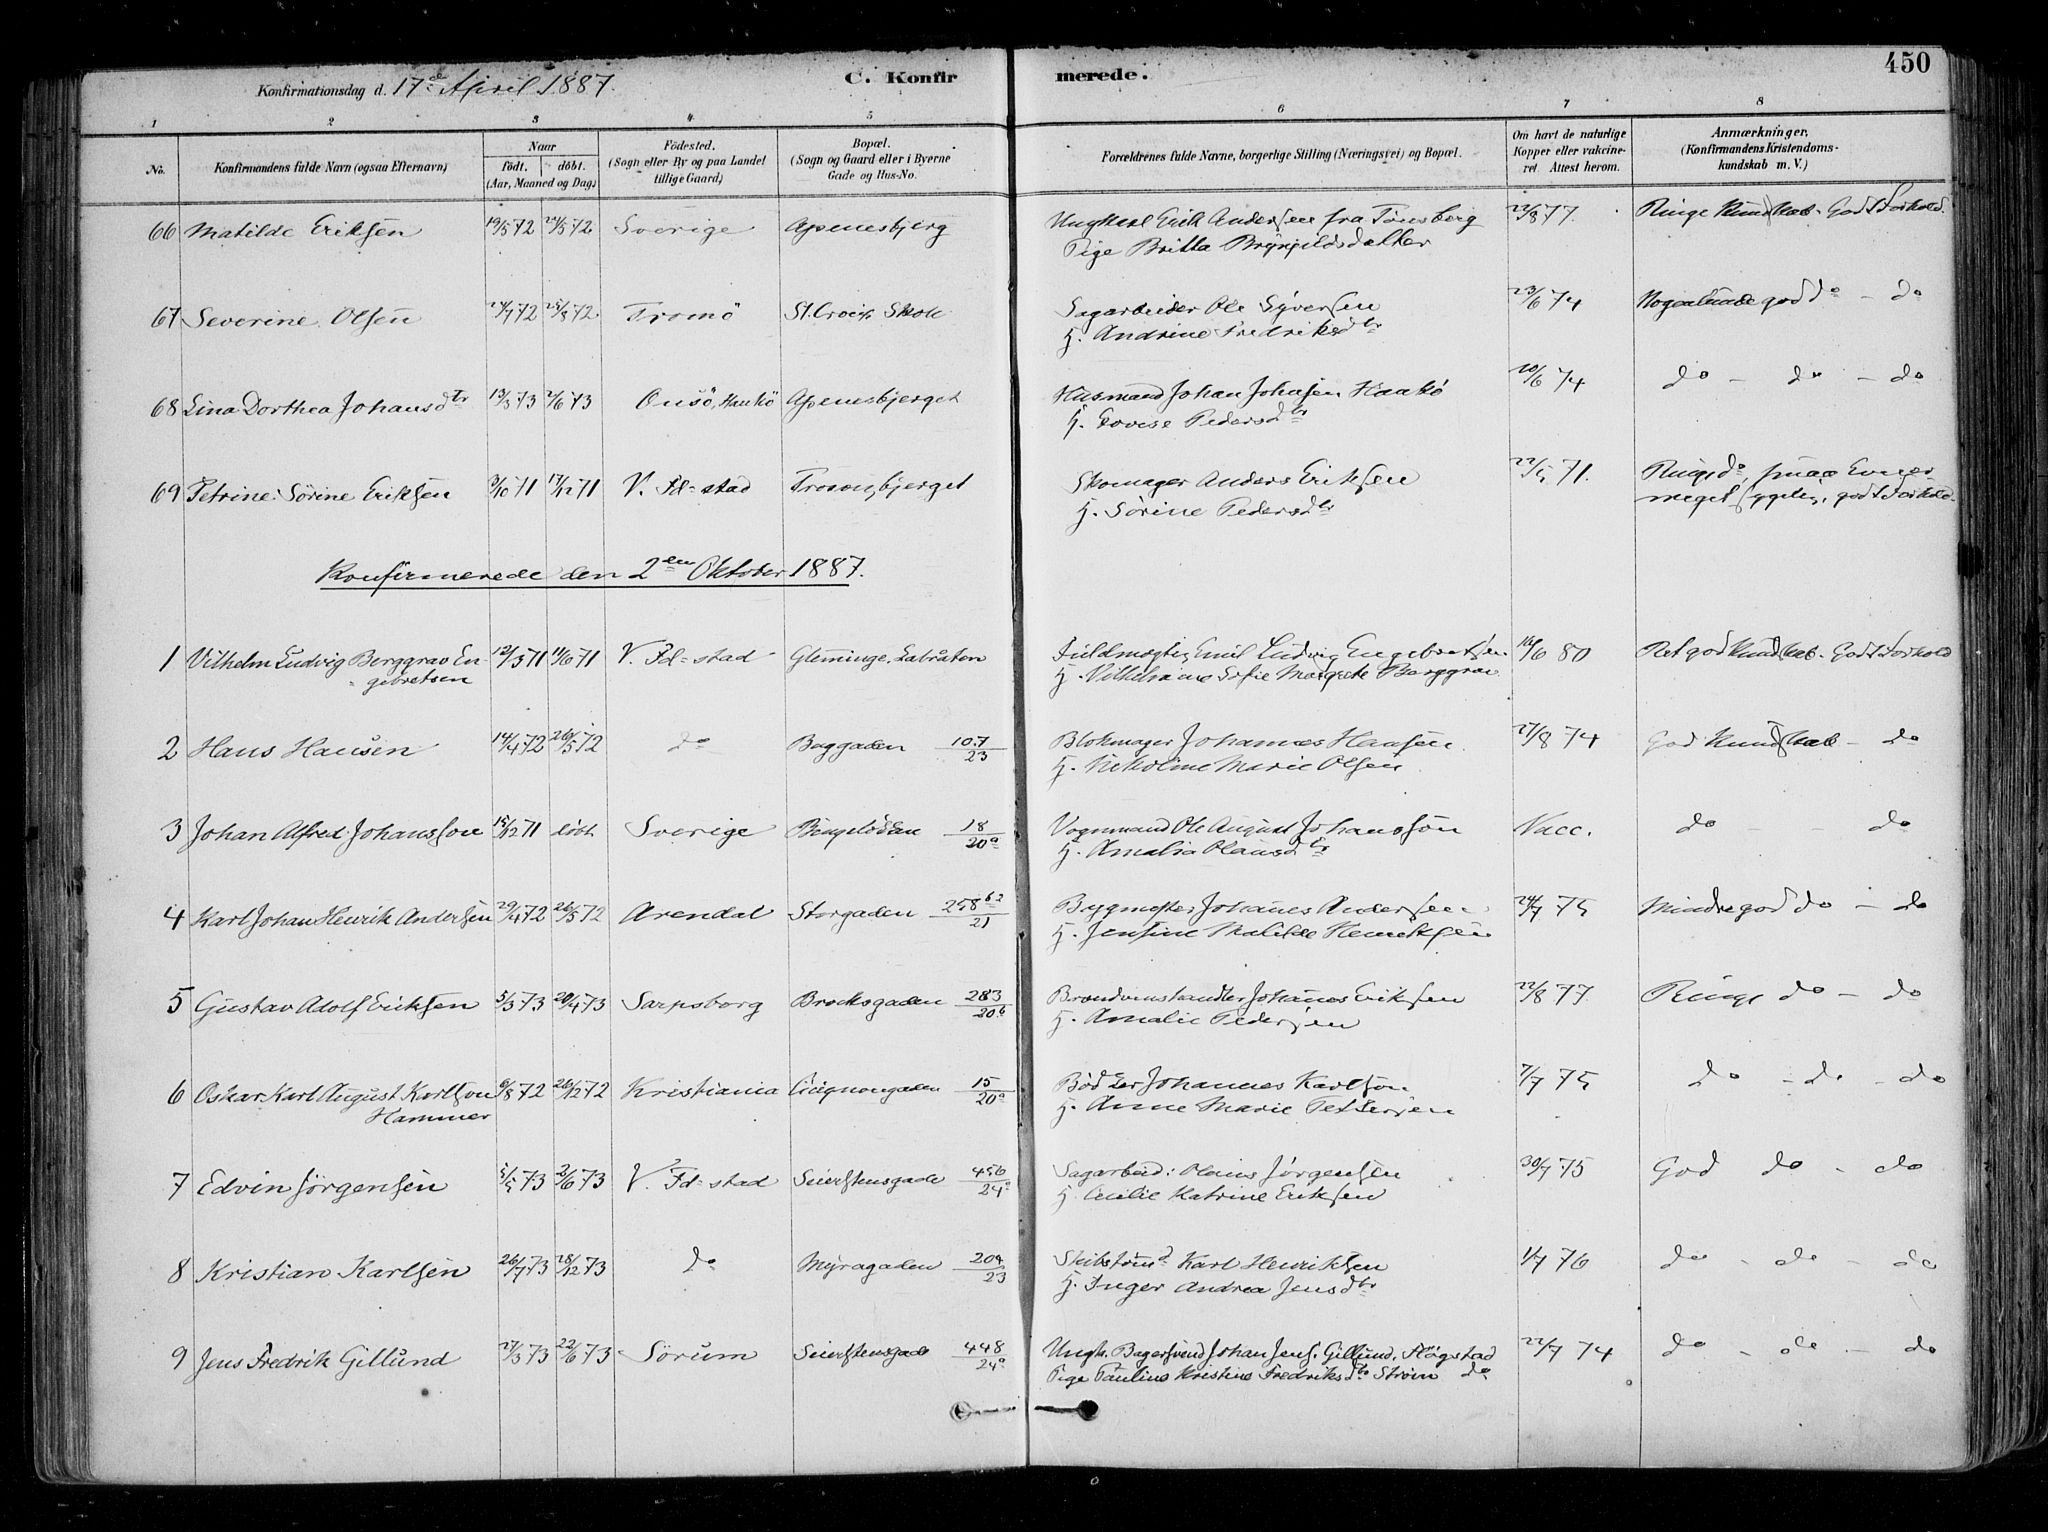 450
Konfirmationsdag d. 17de April 1887.
C. Konfirmerede.
1 2 3 4 5 6 7 8
No. Konfirmandens fulde Navn (ogsaa Efternavn) Naar födt. döbt. (Aar, Maaned og Dag) Födested. (Sogn eller By og paa Landet tillige Gaard) Bopæl. (Sogn og Gaard eller i Byerne Gade og Hus-No. Forældrenes fulde Navne, borgerlige Stilling (Næringsvei) og Bopæl. Om havt de naturlige Kopper eller vakcineret. Attest herom. Anmærkninger. (Konfirmandens Kristendomskundskab m. V.)
66 Matilde Eriksen 19/5 72 Sverige Apenesbjerg Ungkarl Erik Andersen fra Tönsberg 22/8 77. Ringe Kundskab. Godt Forhold.
Pige Britta Brynjildsdatter
67 Severine Olsen 24/7 72 25/8 72 Tromö St. Croix Skole Sagarbeider Ole Syversen 23/6 74 Nogenlunde god do - do
H. Andrine Fredriksdtr
68 Lina Dorthea Johansdtr 13/3 73 2/6 73 Onsö, Hankö Apenesbjerget Husmand Johan Johnsen Haakö 20/6 74 do - do - do
H. Lovise Pedersdtr
69 Petrine Sörine Eriksen 3/10 71 17/12 71 V. Fd=stad Trosvigbjerget Skomager Anders Eriksen 22/5 71. Ringe do, smaa Evner
H. Sörine Pedersdtr meget sygelig, godt Forhold.
Konfirmerede den 2den Oktober 1887.
1 Vilhelm Ludvig Berggrav En- 12/3 71 11/6 71 V. Fd=stad Glemminge, Labraaten Fuldmægtig Emil Ludvig Engebretsen 16/6 80 Ret god Kundskab. Godt Forhold
gebretsen H. Vilhelmine Sofie Margrete Berggrav
2 Hans Hansen 14/4 72 26/5 72 do Baggaden 107/23 Blokmager Johannes Hansen 27/8 74 God Kundskab - do
H. Nikoline Marie Olsen
3 Johan Alfred Johansson 15/12 71 döbt Sverige 18/20a Vognmand Ole August Johansson Vacc. do - - do
H. Amalia Olausdtr
4 Karl Johan Henrik Andersen 29/4 72 26/5 72 Arendal Storgaden 258 62/21 Bygmester Johannes Andersen 24/7 75 Mindre god do - do
H. Jensine Matilde Henriksen
5 Gustav Adolf Eriksen 5/3 73 20/4 73 Sarpsborg Brocksgaden 283/20b Brændevinshandler Johannes Eriksen 22/8 77. Ringe do - do
H. Amalie Pedersen
6 Oskar Karl August Karlson 6/8 72 26/12 72 Kristiania Cicignongaden 15/20a Bödker Johannes Karlson 7/7 75 do - do - do
Hammer H. Anne Marie Pettersen
7 Edvin Jörgensen 5/5 73 2/6 73 V. Fd=stad Seierstensgade 456/24a Sagarbeid: Olaus Jörgensen 30/7 75 God do - do
H. Cecilie Katrine Eriksen
8 Kristian Karlsen 26/7 73 28/12 73 do Myragaden 209/23 Skibstömd Karl Henriksen 1/7 76 do - do - do
H. Inger Andrea Jensdtr
9 Jens Fredrik Gillund 27/3 73 22/6 73 Sörum Seierstensgade 448/24a Ungk. Bagersvend Johan Jens. Gillund, Högstad 22/7 74 do - do - do
Pige Pauline Kristine Fredriksdtr Ström do